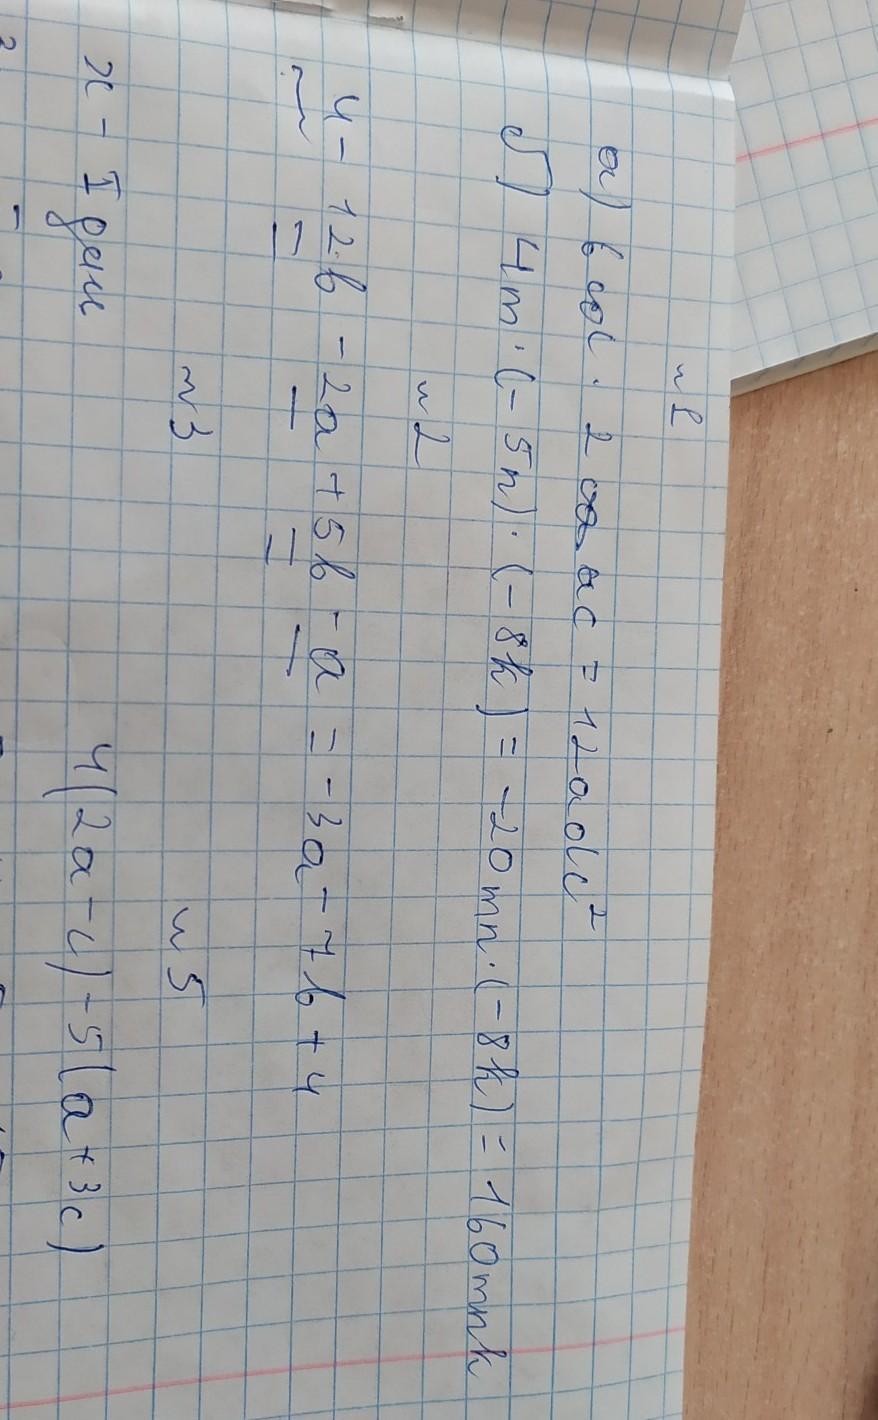 №1
а) 6cd · 2 ac = 12acdc²
б) 4m · (-5n) · (-8k) = -20mn · (-8k) = 160mnk
№2
4 - 12b - 2a + 5b - a = -3a - 7b + 4
№3
x - I день
№5
4(2a - c) - 5(a + 3c)